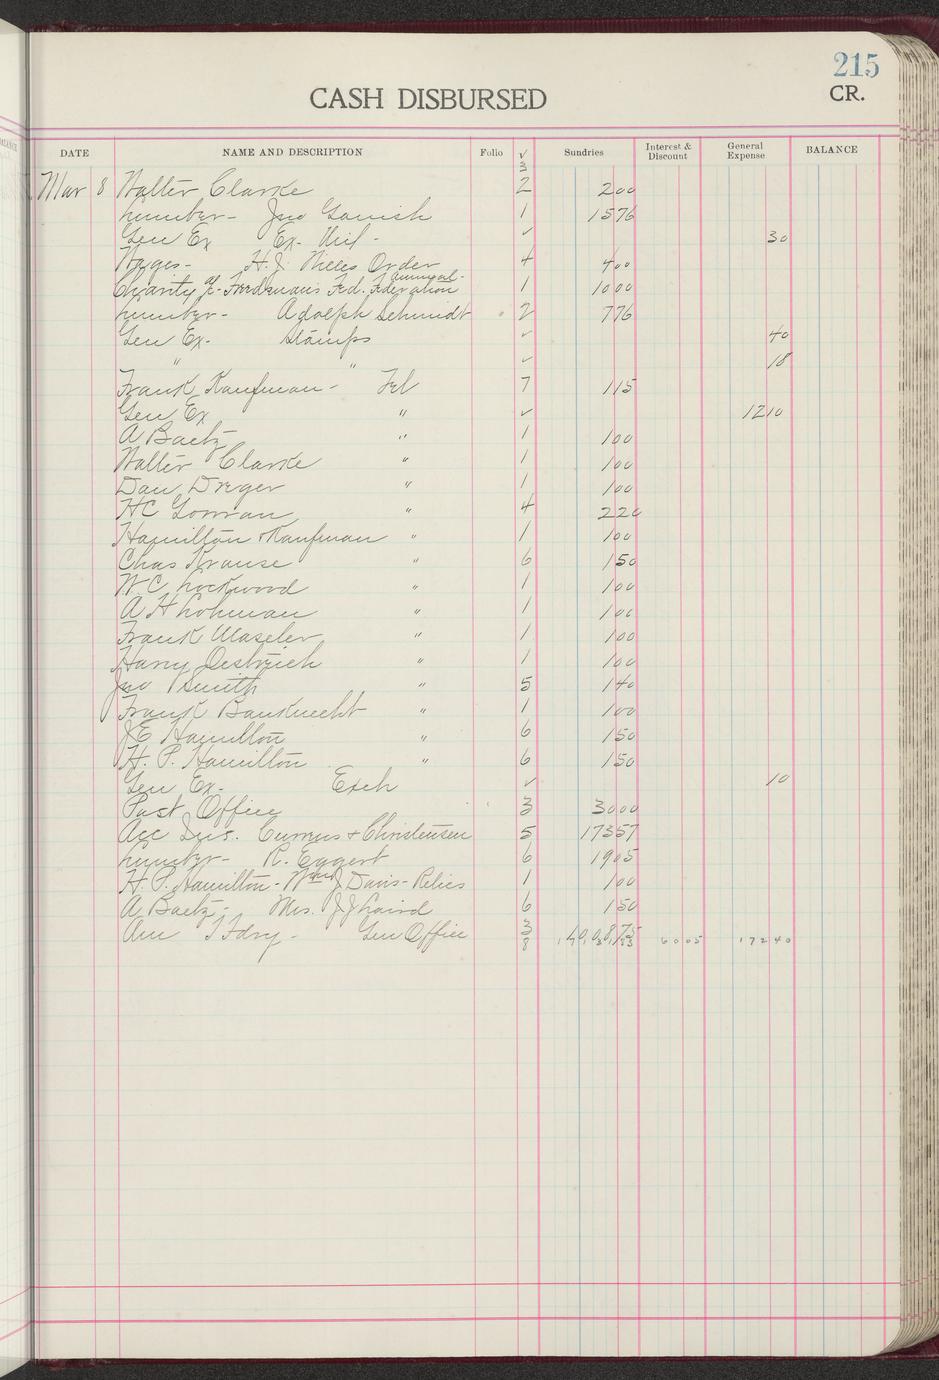 215
CASH DISBURSED CR.
DATE NAME AND DESCRIPTION Folio ✓ Sundries Interest & Discount General Expense BALANCE
3
Mar 8 Walter Clarke 2 200
Lumber- Jno 1 1576
Gen Ex Ex. ✓ 30
Wages- H.J. Order 4 400
annual-
Charity Fed. Federation 1 1000
Lumber- Adolph Schmidt 2 776
Gen Ex- Stamps ✓ 40
" " ✓ 18
Frank Kaufman- Fel 7 115
Gen Ex " ✓ 1210
A Baetz " 1 100
Walter Clarke " 1 100
Dan Dreger " 1 100
HC Gorman " 4 220
Hamilton & Kaufman " 1 100
Chas Krause " 6 150
W.C. Lockwood " 1 100
A H Lohman " 1 100
Frank Maseler " 1 100
Harry Oestreich " 1 100
Jno Smith " 5 140
Frank Bauknecht " 1 100
J.E. Hamilton " 6 150
H. P. Hamilton " 6 150
Gen Ex- Exch ✓ 10
Post Office 3 3000
Acc Ins. & Christensen 5 17357
Lumber- R. Eggert 6 1905
H. P. Hamilton- Wm J Davis- Relics 1 100
A Baetz- Mrs. J J Laird 6 150
Am T Fdry- Gen Office 3 40875
8 6005 17240